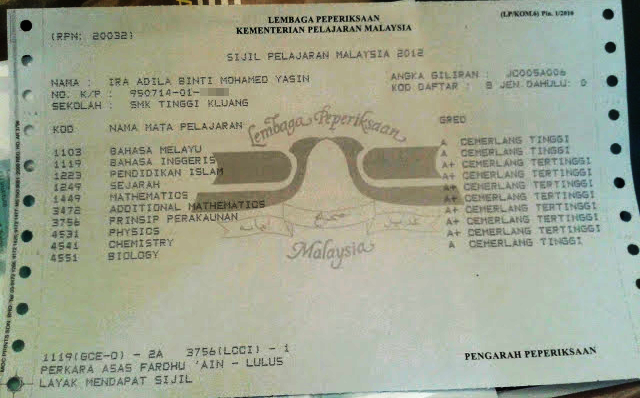 LEMBAGA PEPERIKSAAN
KEMENTERIAN PELAJARAN MALAYSIA
(LP/KOM.6) Pin. 1/2010
(RPN: 20032)
SIJIL PELAJARAN MALAYSIA 2012
NAMA : IRA ADILA BINTI MOHAMED YASIN
ANGKA GILIRAN : JC005A006
NO. K/P : 950714-01-
KOD DAFTAR : B JEN.DAHULU: 0
SEKOLAH : SMK TINGGI KLUANG
KOD NAMA MATA PELAJARAN GRED
1103 BAHASA MELAYU A CEMERLANG TINGGI
1119 BAHASA INGGERIS A CEMERLANG TINGGI
1223 PENDIDIKAN ISLAM A+ CEMERLANG TERTINGGI
1249 SEJARAH A+ CEMERLANG TERTINGGI
1449 MATHEMATICS A+ CEMERLANG TERTINGGI
3472 ADDITIONAL MATHEMATICS A+ CEMERLANG TERTINGGI
3756 PRINSIP PERAKAUNAN A+ CEMERLANG TERTINGGI
4531 PHYSICS A+ CEMERLANG TERTINGGI
4541 CHEMISTRY A+ CEMERLANG TERTINGGI
4551 BIOLOGY A CEMERLANG TINGGI
Lembaga Peperiksaan
Malaysia
1119(GCE-O) - 2A 3756(LCCI) - 1
PERKARA ASAS FARDHU 'AIN - LULUS
LAYAK MENDAPAT SIJIL
PENGARAH PEPERIKSAAN